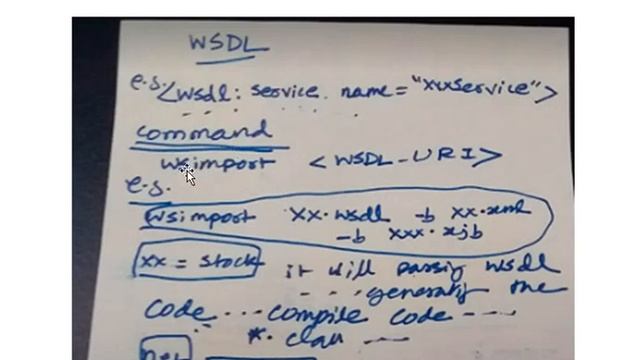 WSDL
e.g. <wsdl: service name="xxxservice">
command
wsimport <WSDL-URI>
e.g.
wsimport xx.wsdl -b xx.xml
-b xxx.xjb
xx = stock it will parsing wsdl
--- generating the
code ... compile code ----
*. class ----